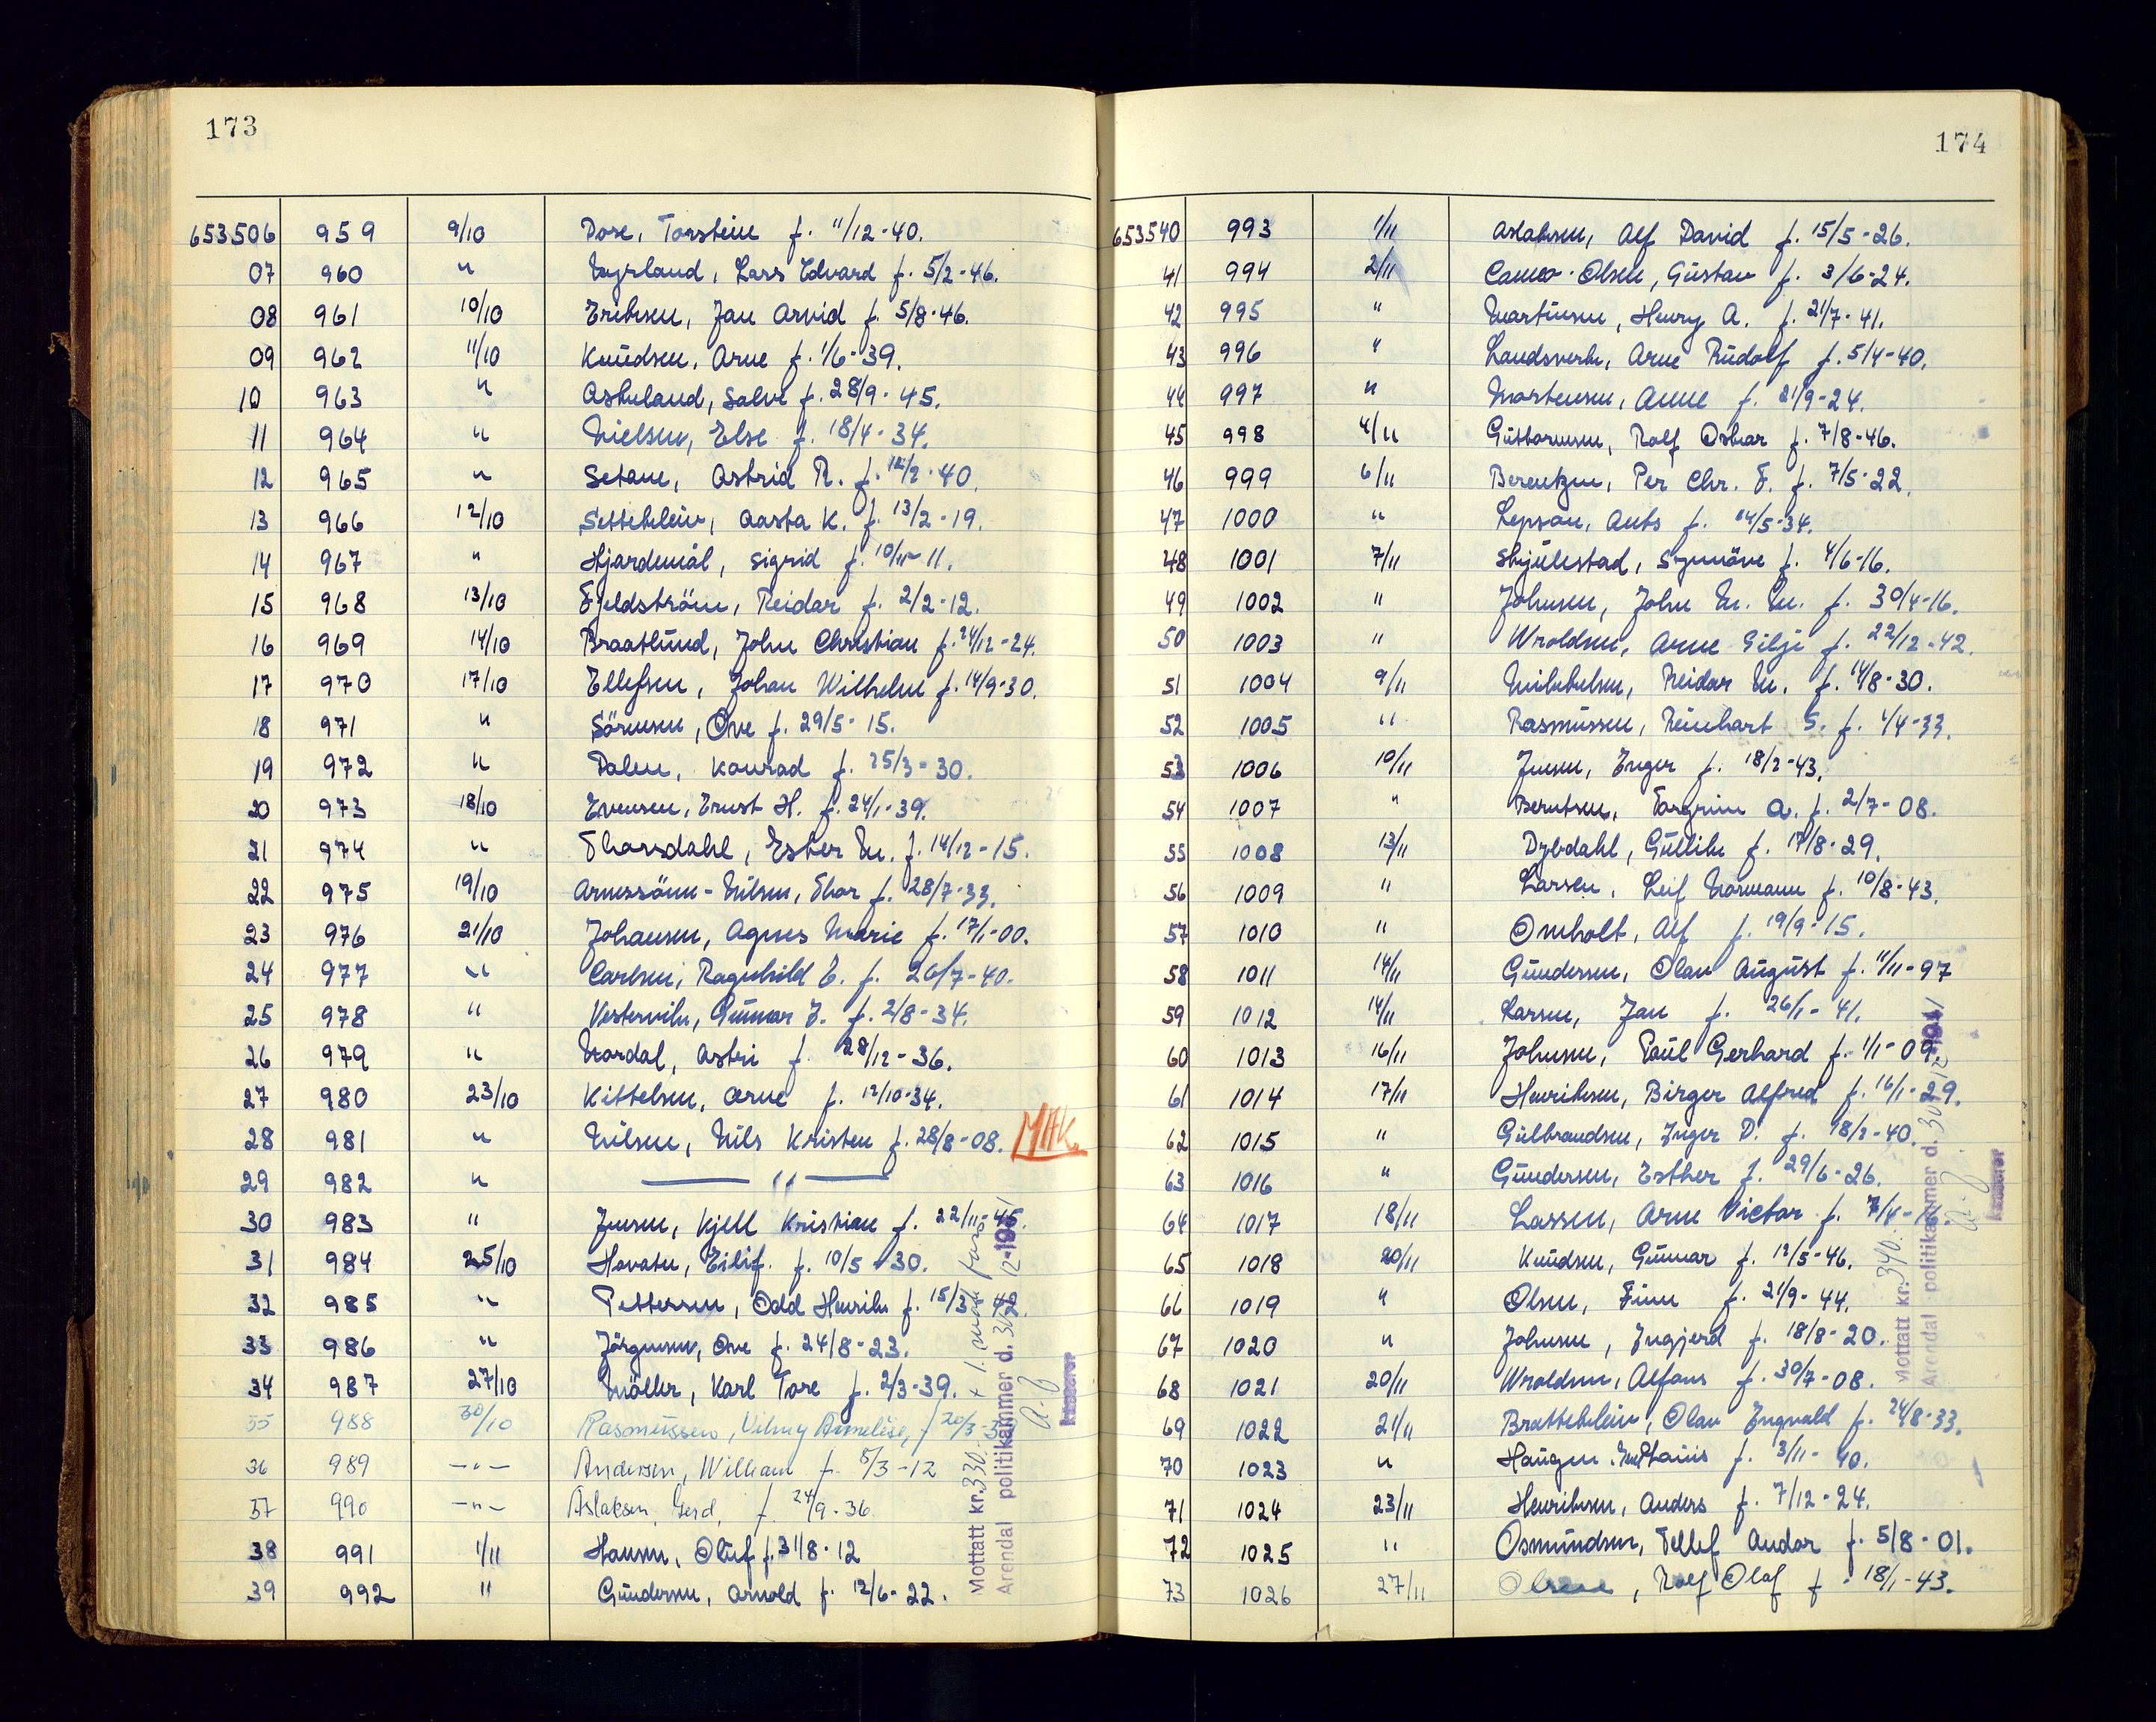 173
653506 959 9/10 Dore, Torstein f. 11/12-40.
07 960 " Myrland, Lars Edvard f. 5/2-46.
08 961 10/10 Eriksen, Jan Arvid f. 5/8-46.
09 962 11/10 Knudsen, Arne f. 1/6-39.
10 963 " Askeland, Salve f. 28/9-45.
11 964 " Nielsen, Else f. 18/4-34.
12 965 " Setane, Astrid R. f. 12/2-40.
13 966 12/10 Settekleiv, Aasta K. f. 13/2-19.
14 967 " Hjardemål, Sigrid f. 10/11-11.
15 968 13/10 Fjeldström, Reidar f. 2/2-12.
16 969 14/10 Braatlund, John Christian f. 24/12-24.
17 970 17/10 Ellefsen, Johan Wilhelm f. 14/9-30.
18 971 " Sörensen, Ove f. 29/5-15.
19 972 " Dalen, Konrad f. 25/3-30.
20 973 18/10 Evensen, Ernst H. f. 24/1-39.
21 974 " Thorsdahl, Esther M. f. 14/12-15.
22 975 19/10 Arnessönn-Nilsen, Thor f. 28/7-33.
23 976 21/10 Johansen, Agnes Marie f. 17/1-00.
24 977 " Carlsen, Ragnhild E. f. 26/7-40.
25 978 " Vestervik, Gunnar J. f. 2/8-34.
26 979 " Nordal, Astri f. 28/12-36.
27 980 23/10 Kittelsen, Arne f. 12/10-34.
28 981 " Nilsen, Nils Kristen f. 28/8-08. MAK.
29 982 " — " —
30 983 " Jensen, Kjell Kristian f. 22/11-45.
31 984 25/10 Hovatn, Eilif. f. 10/5-30.
32 985 " Pettersen, Odd Henrik f. 15/3-
33 986 " Jörgensen, Ove f. 24/8-23.
34 987 27/10 Möller, Karl Tore f. 2/3-39.
35 988 30/10 Rasmussen, Vilmy Annelise, f 20/3-
36 989 -"- Andersen, William f. 5/3-12
37 990 -"- Aslaksen, Gerd, f. 24/9-36
38 991 1/11 Hansen, Oluf f. 31/8-12
39 992 " Gundersen, Arnold f. 12/6-22.
Mottatt kr. 330.
Arendal politikammer d.
Kasserer
174
653540 993 1/11 Aslaksen, Alf David f. 15/5-26.
41 994 2/11 Olsen, Gustav f. 3/6-24.
42 995 " Martinsen, Henry A. f. 21/7-41.
43 996 " Landsverk, Arne Rudolf f. 5/4-40.
44 997 " Mortensen, Anne f. 21/9-24.
45 998 4/11 Guttormsen, Rolf Oskar f. 7/8-46.
46 999 6/11 Berentzen, Per Chr. F. f. 7/5-22.
47 1000 " Lepsøn, Ants f. 14/5-34.
48 1001 7/11 Skjulestad, Synnöve f. 4/6-16.
49 1002 " Johnsen, John M. M. f. 30/4-16.
50 1003 " Wroldsen, Arne Gilje f. 22/12-42.
51 1004 9/11 Mikkelsen, Reidar M. f. 14/8-30.
52 1005 " Rasmussen, Reinhart S. f. 1/4-33.
53 1006 10/11 Jensen, Inger f. 18/2-43.
54 1007 " Berntsen, Torgrim A. f. 2/7-08.
55 1008 13/11 Dybdahl, Gullik f. 17/8-29.
56 1009 " Larsen, Leif Normann f. 10/8-43.
57 1010 " Omholt, Alf f. 19/9-15.
58 1011 14/11 Gundersen, Olav August f. 11/11-97
59 1012 14/11 Larsen, Jan f. 26/1-41.
60 1013 16/11 Johnsen, Paul Gerhard f. 1/1-09.
61 1014 17/11 Henriksen, Birger Alfred f. 16/1-29.
62 1015 " Gulbrandsen, Inger D. f. 18/2-40.
63 1016 " Gundersen, Esther f. 29/6-26.
64 1017 18/11 Lassen, Arne Victor f. 7/4-
65 1018 20/11 Knudsen, Gunnar f. 12/5-46.
66 1019 " Olsen, Finn f. 21/9-44.
67 1020 " Johnsen, Ingjerd f. 18/8-20.
68 1021 20/11 Wroldsen, Alfons f. 30/7-08.
69 1022 21/11 Brattekleiv, Olav Ingvald f. 24/8-33.
70 1023 " Haugen f. 3/11-40.
71 1024 23/11 Henriksen, Anders f. 7/12-24.
72 1025 " Osmundsen, Tellef Andor f. 5/8-01.
73 1026 27/11 Olsen, Rolf Olaf f. 18/1-43.
Mottatt kr. 340.
Arendal politikammer d. 30/12
Kasserer